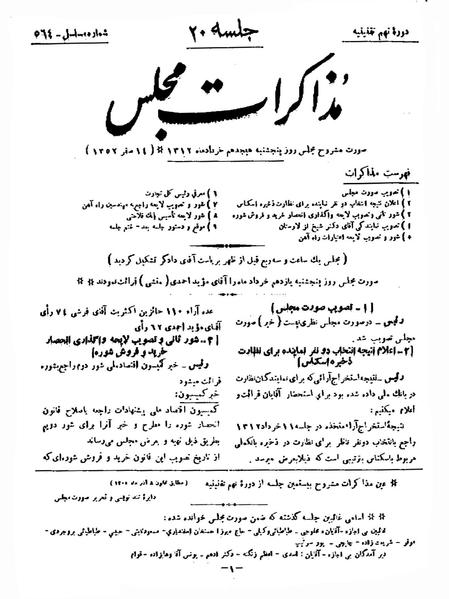 دورهٔ نهم تقنینیه
جلسه ۲۰
شماره مسلسل - ۵۶۴
مذاکرات مجلس
صورت مشروح مجلس روز پنجشنبه هیجدهم خرداد ماه ۱۳۱۲ * (۱۴ صفر ۱۳۵۲)
فهرست مذاکرات
۱) تصویب صورت مجلس
۲) اعلان نتیجه انتخاب دو نفر نماینده برای نظارت ذخیره اسکناس
۳) شور ثانی و تصویب لایحه واگذاری انحصار خرید و فروش شوره
۴) تصویب نمایندگی آقای دکتر شیخ از لارستان
۵) شور و تصویب لایحه اعتبارات راه آهن
۶) معرفی رئیس کل تجارت
۷) شور و تصویب لایحه راجع به مهندسین راه آهن
۸) شور لایحه تأسیس بانک فلاحتی
۹) موقع و دستور جلسه بعد - ختم جلسه
(مجلس یک ساعت و سه ربع قبل از ظهر بریاست آقای دادگر تشکیل گردید)
صورت مجلس روز پنجشنبه یازدهم خرداد ماه را آقای مؤید احمدی (منشی) قرائت نمودند
[۱ - تصویب صورت مجلس]
رئیس - در صورت مجلس نظری نیست (خیر) صورت
مجلس تصویب شد.
[۲ - اعلام نتیجه انتخاب دو نفر نماینده برای نظارت
ذخیره اسکناس]
رئیس - نتیجه استخراج آرائی که برای نمایندگان نظارت
در بانک ملی داده شده بود برای استحضار آقایان قرائت و
اعلام میکنیم:
نتیجه استخراج آراء متخذه در جلسه ۱۱ خرداد ۱۳۱۲
راجع بانتخاب دو نفر ناظر برای نظارت در ذخیره بانک ملی
مربوط باسکناس بترتیبی است که ذیلا بعرض میرسد.
عده آراء ۱۱۰ حائزین اکثریت آقای فرشی ۷۴ رأی
آقای مؤید احمدی ۶۲ رأی
[۳ - شور ثانی و تصویب لایحه واگذاری انحصار
خرید و فروش شوره]
رئیس - خبر کمیسیون اقتصاد ملی شور دوم راجع بشوره
قرائت میشود
خبر کمیسیون:
کمیسیون اقتصاد ملی پیشنهادات راجعه باصلاح قانون
انحصار شوره را مطرح و خبر آنرا برای شور دویم
بطریق ذیل تهیه و بعرض مجلس می‌رساند
از تاریخ تصویب این قانون خرید و فروش شوره‌ای که
* عین مذاکرات مشروح بیستمین جلسه از دورهٔ نهم تقنینیه
دایرهٔ تند نویسی و تحریر صورت مجلس
* * اسامی غائبین جلسه گذشته که ضمن صورت مجلس خوانده شده:
- ۱ -